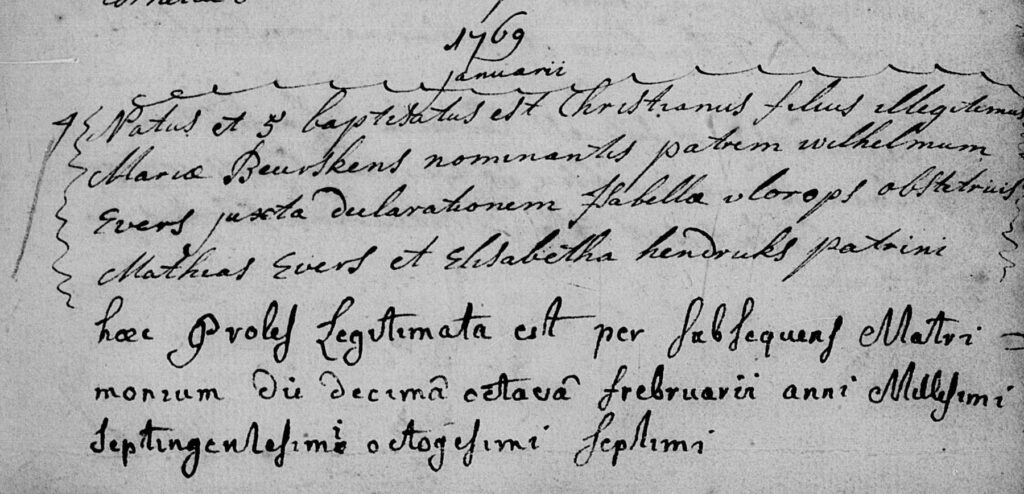 cornelia
1769
januarii
4 Natus et 5 baptisatus est Christianus filius illegitimus
Mariæ Beurskens nominantis patrem wilhelmum
Evers juxta declarationem Isabellæ vlorops obstetricis
Mathias Evers et Elisabetha hendricks patrini
hæc Proles Legitimata est per subsequens Matri=
monium die decimâ octavâ frebruarii anni Millesimi
septingentesimi octogesimi septimi